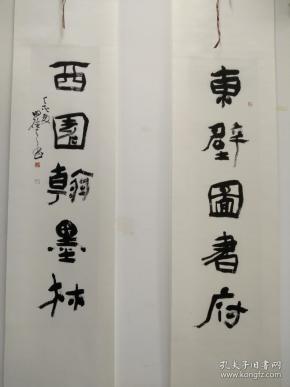 東壁圖書府
西園翰墨林
孔夫子旧书网
kongfz.com